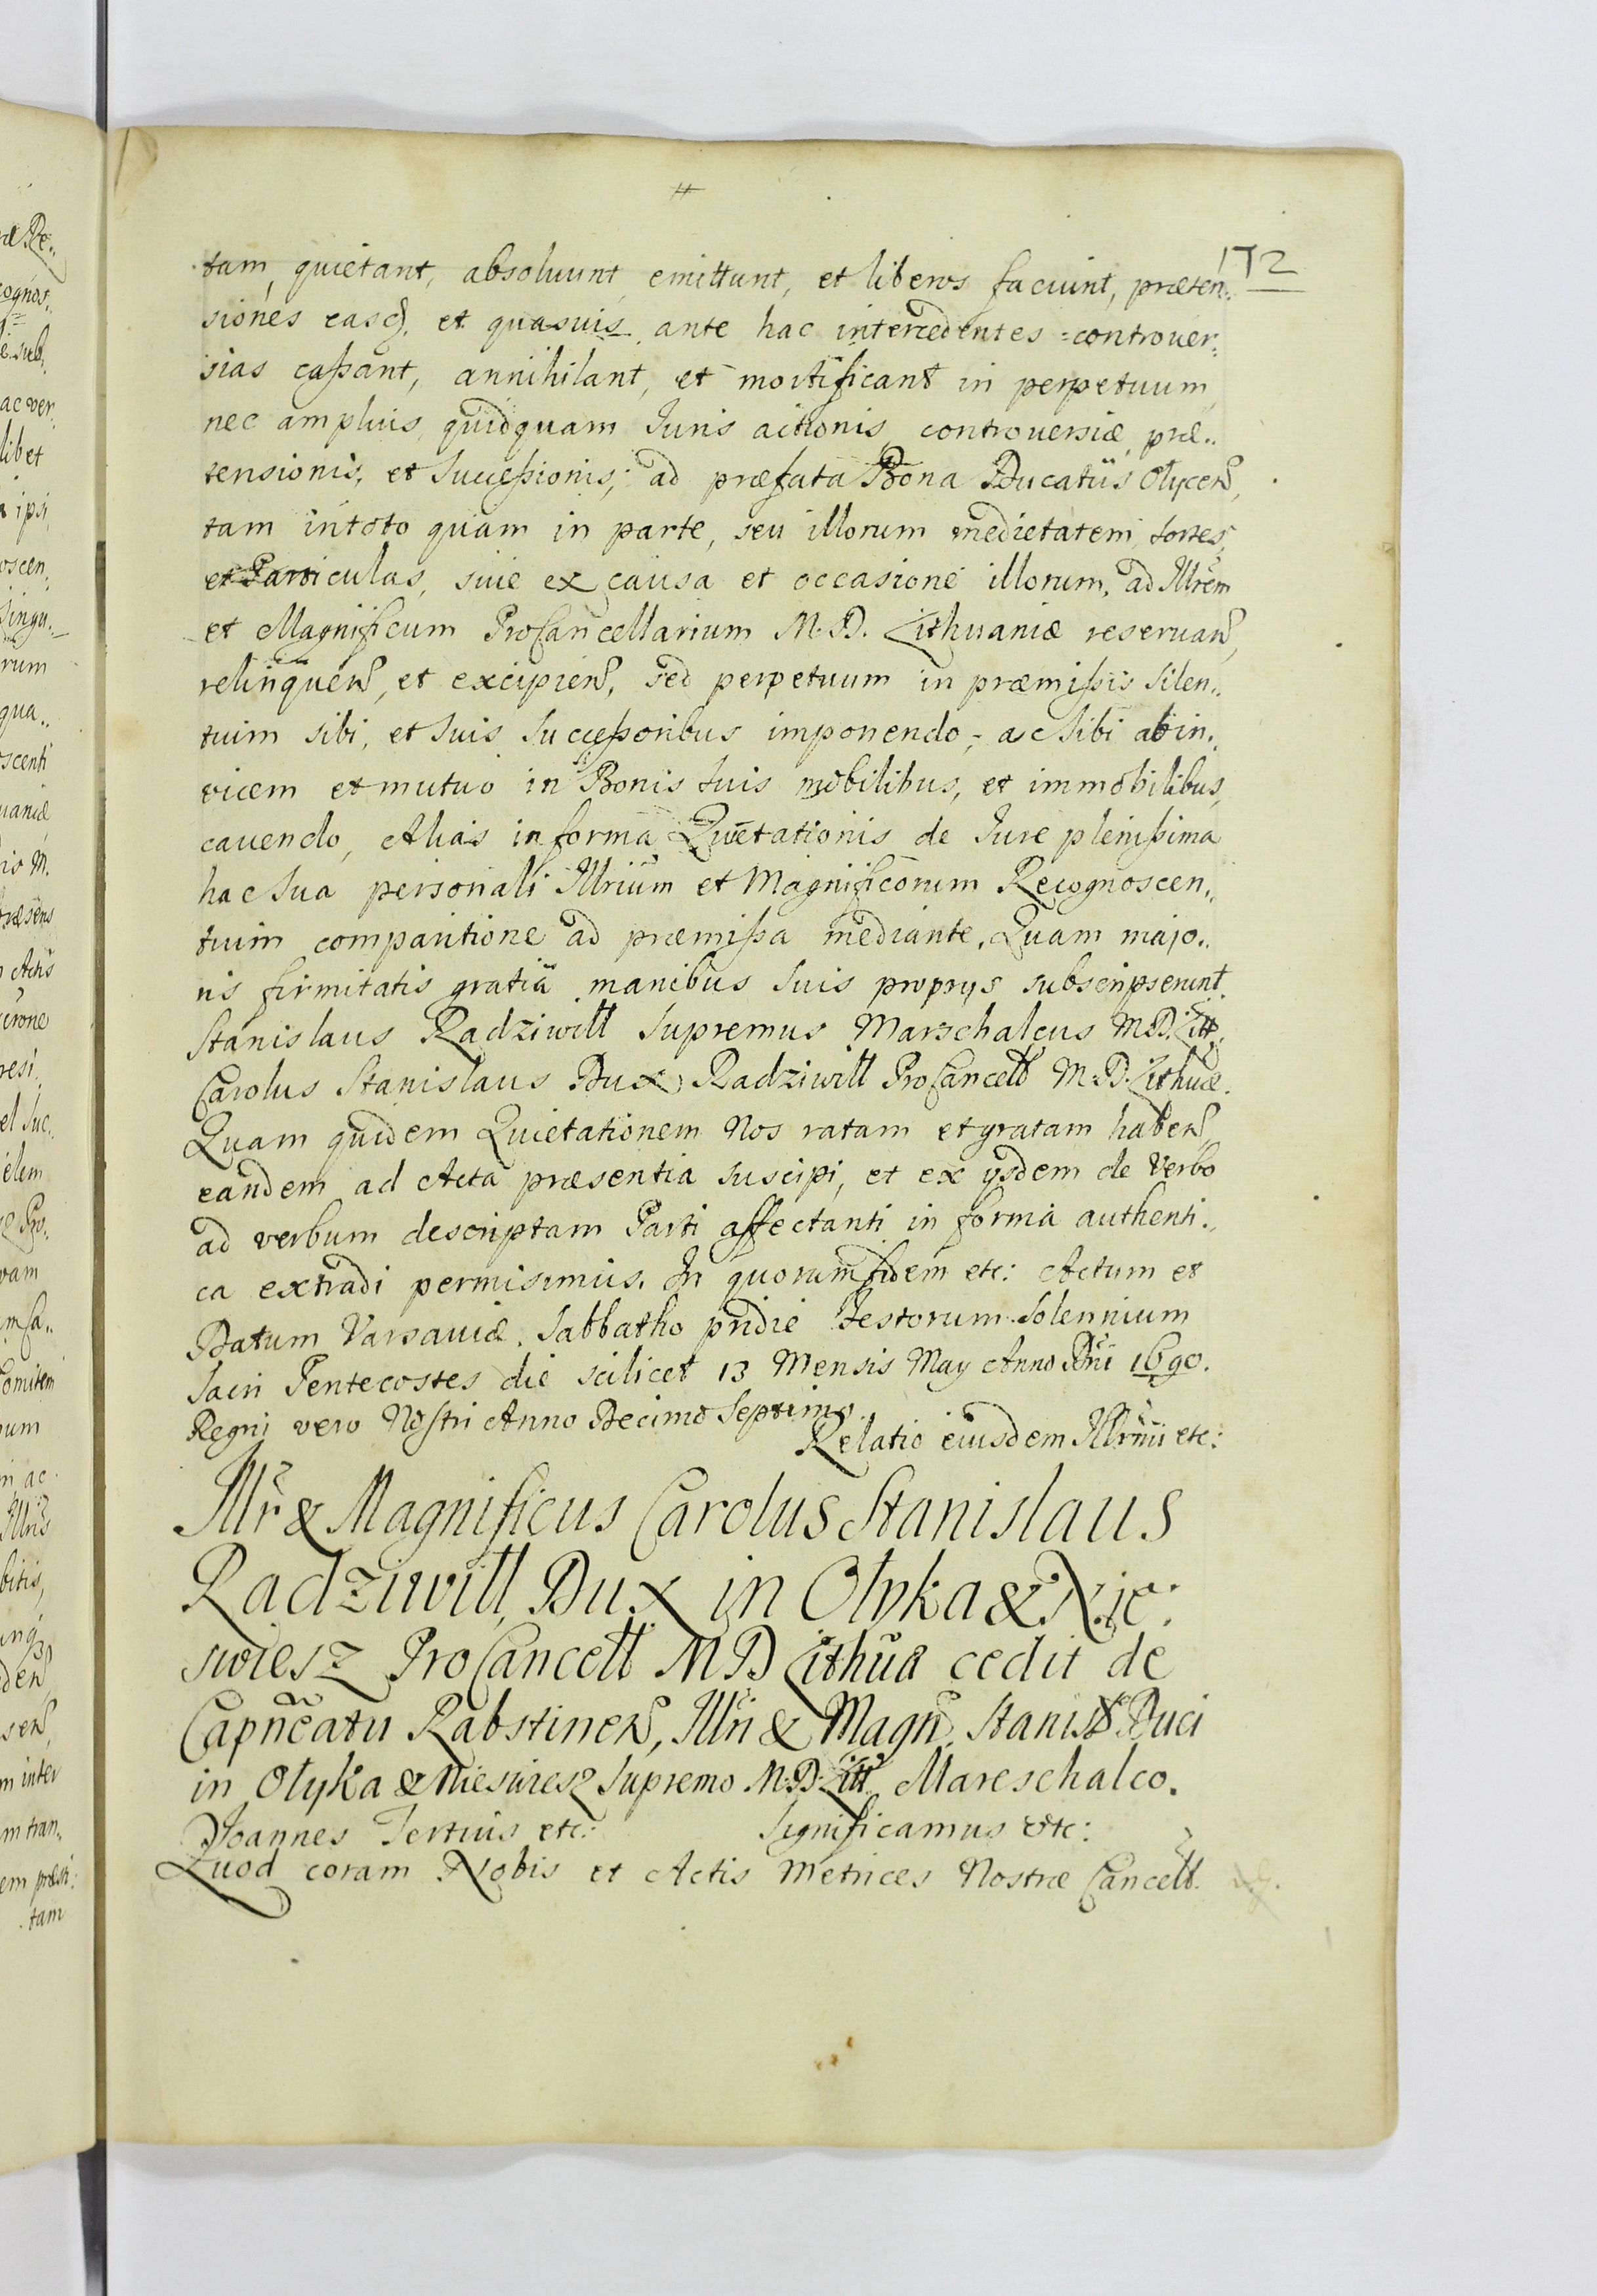 172
tam, quietant, absoluunt, emittunt, et liberos faciunt, præten„
siones easq, et quasuis, ante hac intercedentes controuer„
sias caßant, annihilant, et mortificant in perpetuum,
nec amplius, quidquam Juris actionis, controuersiæ, præ„
tensionis, et Succeßionis, ad præfata Bona Ducatus Olycen,
tam in toto quam in parte, seu illorum medietatem, sortes,
et Particulas, siue ex causa et occasione illorum, ad Illrem
et Magnificum ProCancellarium M. D. Lithuaniæ reseruan,
relinquen, et excipien, sed perpetuum in præmißis Silen„
tuim sibi, et Suis Succeßoribus imponendo, ac Sibi ab in„
vicem et mutuo in Bonis Suis mobilibus, et immobilibus,
cauendo, Alias in forma Quietationis de Jure plenißima
hac Sua personali Illrium et Magnificorum Recognoscen„
tuim comparitione ad præmißa mediante. Quam majo„
ris firmitatis gratia manibus Suis proprijs subscripserunt.
Stanislaus Radziwill Supremus Marschalcus M. D. Litt.
Carolus Stanislaus Dux Radziwill ProCancell M. D. Lithuæ.
Quam quidem Quietationem Nos ratam et gratam haben,
eandem ad Acta præsentia suscipi, et ex ijsdem de Verbo
ad verbum descriptam Parti affectanti in forma authenti„
ca extradi permisimus. In quorum fidem etc: Actum et
Datum Varsauiæ. Sabbatho pridie Festorum Solennium
Sacri Pentecostes die scilicet 13 Mensis May Anno Dni 1690.
Regni vero Nostri Anno Decimo Septimo.
Relatio eiusdem Illrmi etc:
Illr & Magnificus Carolus Stanislaus
Radziwill, Dux in Olyka & Nie:
swiesz ProCancell M D Lithua cedit de
Capneatu Rabstinen, Illri & Magn. Stanisl Duci
in Olyka & Nieswiesz Supremo M: D: Litt Mareschalco.
Joannes Tertius etc: Significamus etc:
Quod coram Nobis et Actis Metrices Nostræ Cancell.